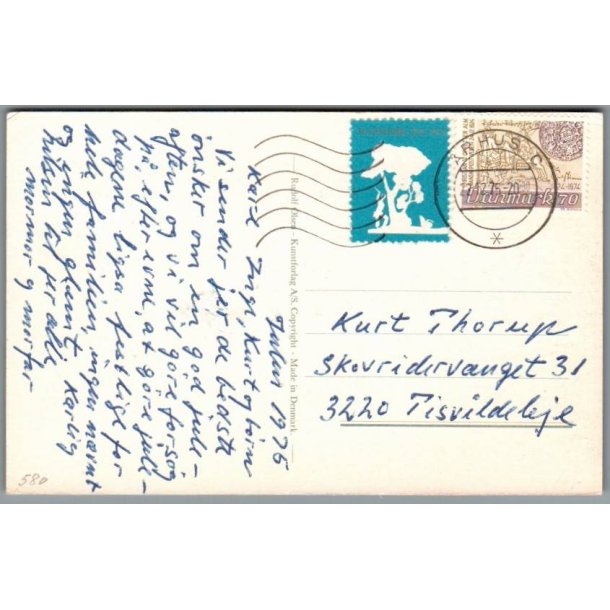 Julen 1975
Kære Inge, Kurt og børn
Vi sender jer de bedste
ønsker om en god jule-
aften, og vi vil gøre forsøg
på efter evne, at gøre jule-
dagene ligså festlige for
hele familien, ingen nævnt
og ingen glemt. Kærlig
hilsen til jer alle
mormor og morfar
Rudolf Olsens Kunstforlag A/S. Copyright - Made in Denmark
ÅRHUS C
Danmark 70
Kurt Thorup
Skovridervænget 31
3220 Tisvildeleje
580